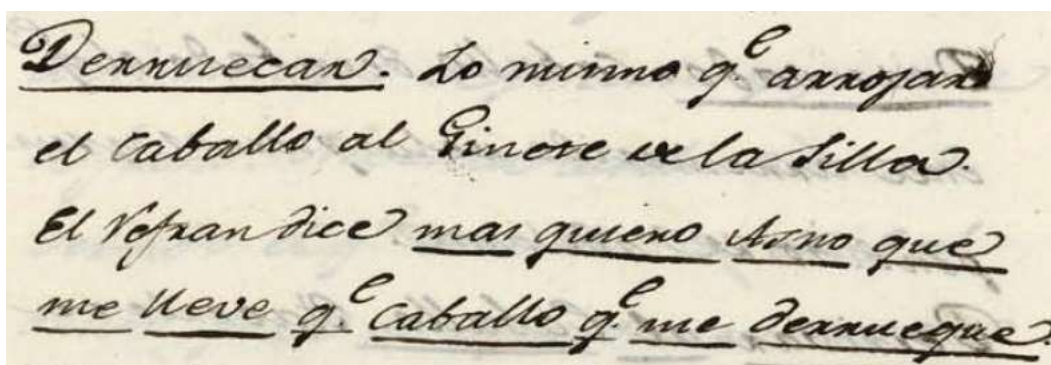 Derruecar. Lo mismo q.e arrojar
el Caballo al Ginete de la Silla.
El Refran dice mas quiero Asno que
me lleve q.e Caballo q.e me derrueque.